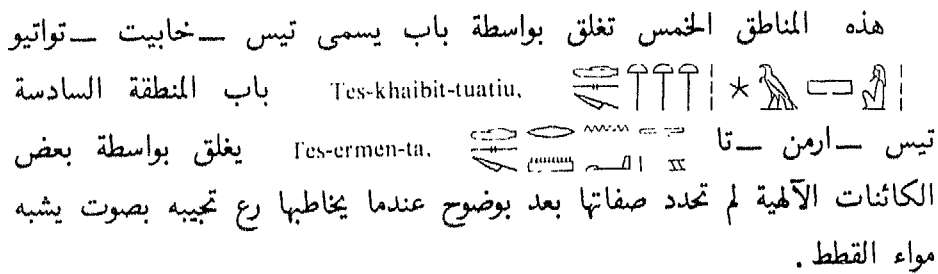 هذه المناطق الخمس تغلق بواسطة باب يسمى تيس ــ خابيت ــ تواتيو
Tes-khaibit-tuatiu, باب المنطقة السادسة
تيس ــ ارمن ــ تا Tes-ermen-ta. يغلق بواسطة بعض
الكائنات الآلهية لم تحدد صفاتها بعد بوضوح عندما يخاطبها رع تجيبه بصوت يشبه
مواء القطط .